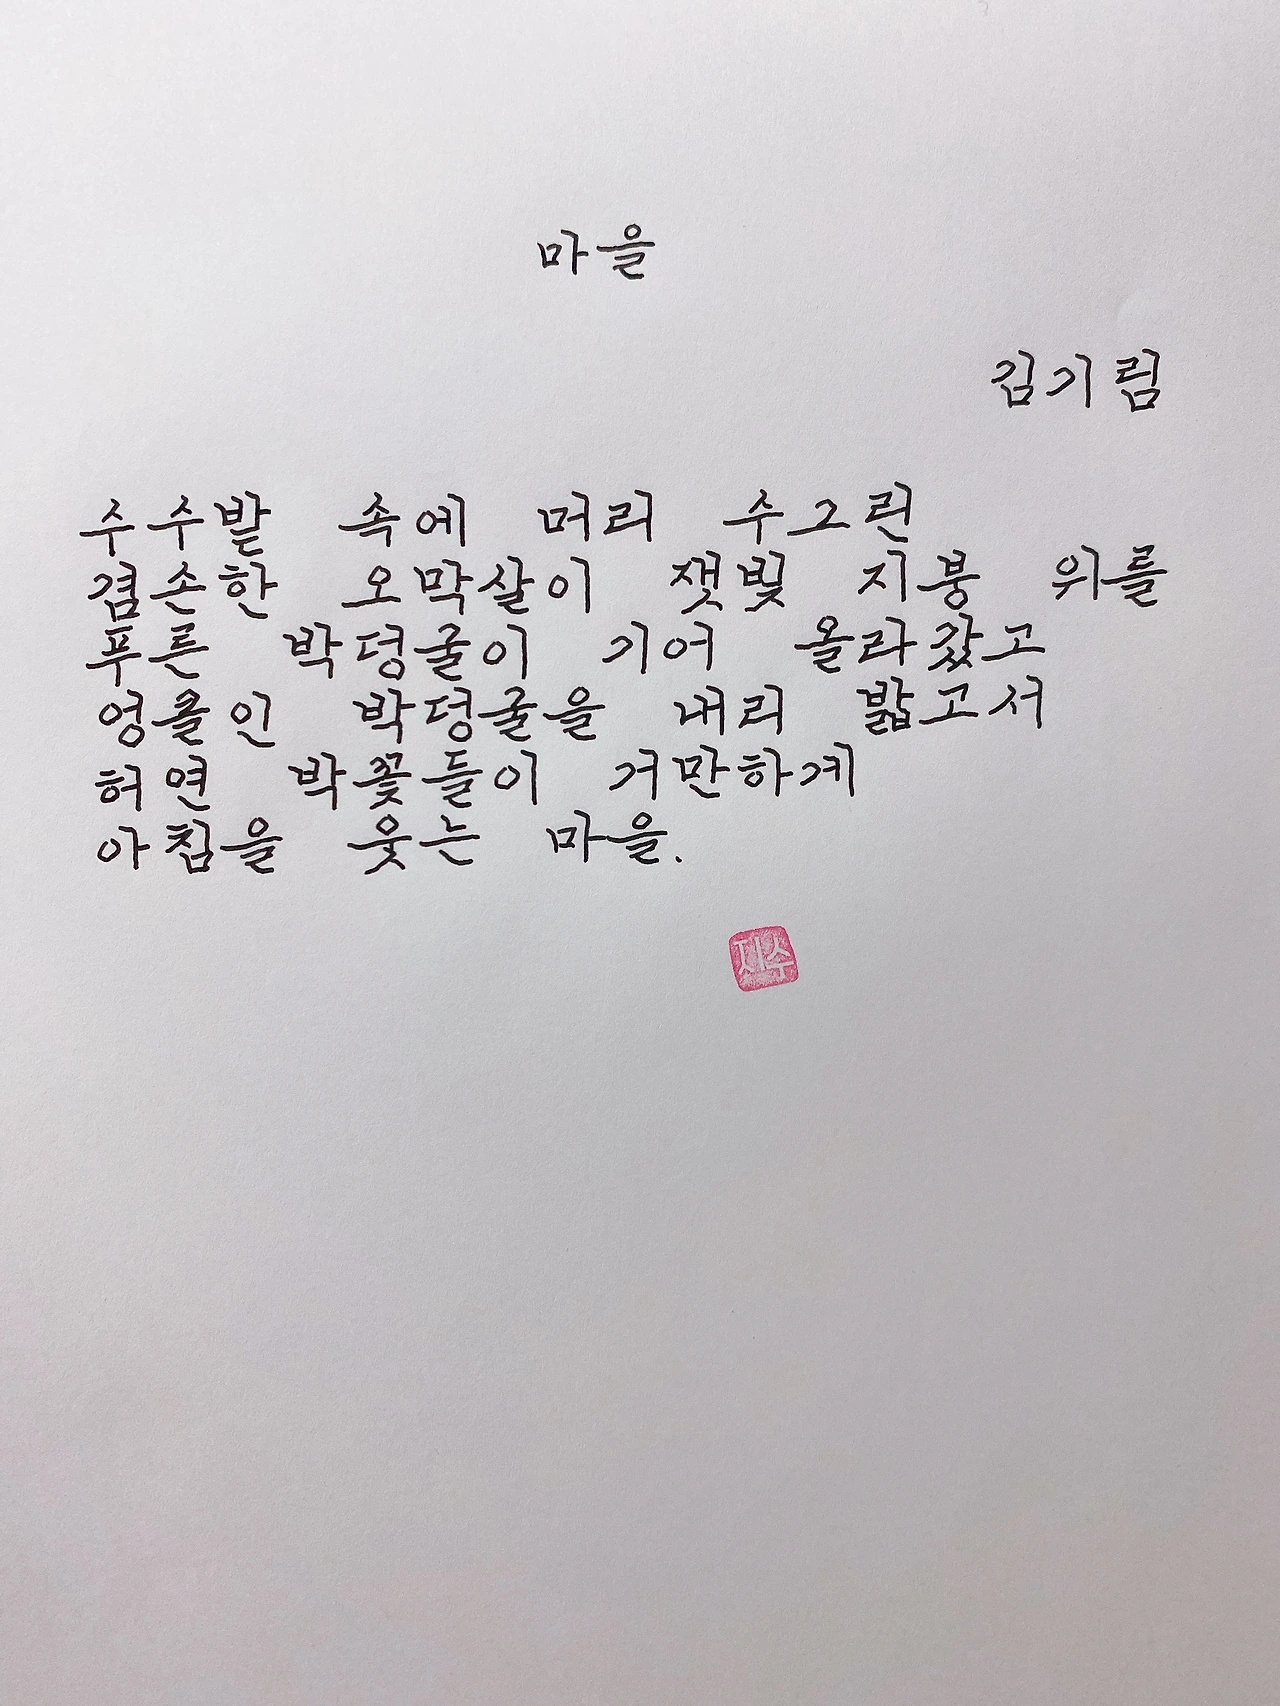 마을
김기림
수수밭 속에 머리 수그린
겸손한 오막살이 잿빛 지붕 위를
푸른 박덩굴이 기어 올라갔고
엉클인 박덩굴을 내리 밟고서
허연 박꽃들이 거만하게
아침을 웃는 마을.